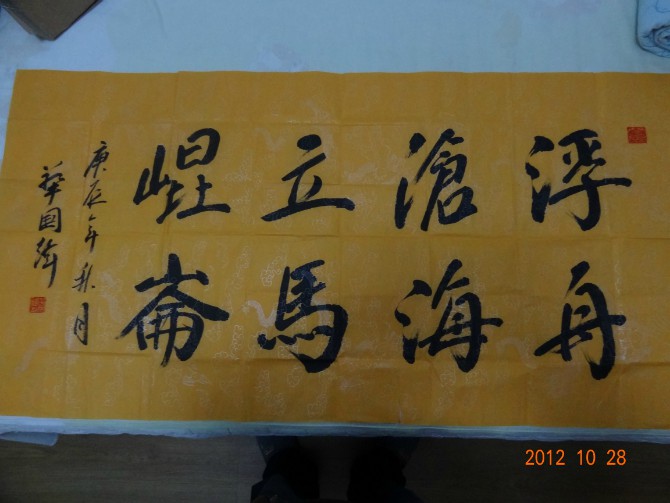 浮舟
滄海
立馬
崐崙
庚辰年秋月
2012 10 28